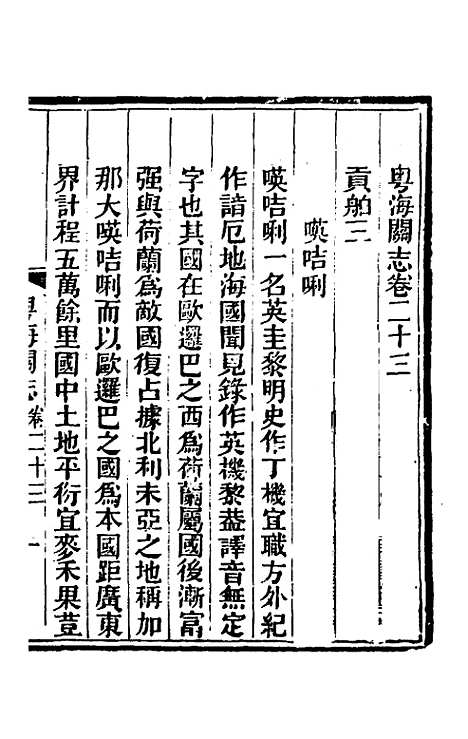 粤海關志卷二十三
貢舶三
㗲咭唎
㗲咭唎一名英圭黎明史作丁機宜職方外紀
作諳厄地海國聞見錄作英機黎葢譯音無定
字也其國在歐邏巴之西爲荷蘭屬國後漸富
强與荷蘭爲敵國復占據北利未亞之地稱加
那大㗲咭唎而以歐邏巴之國爲本國距廣東
界計程五萬餘里國中土地平衍宜麥禾果荳
粤海關志 卷二十三 一